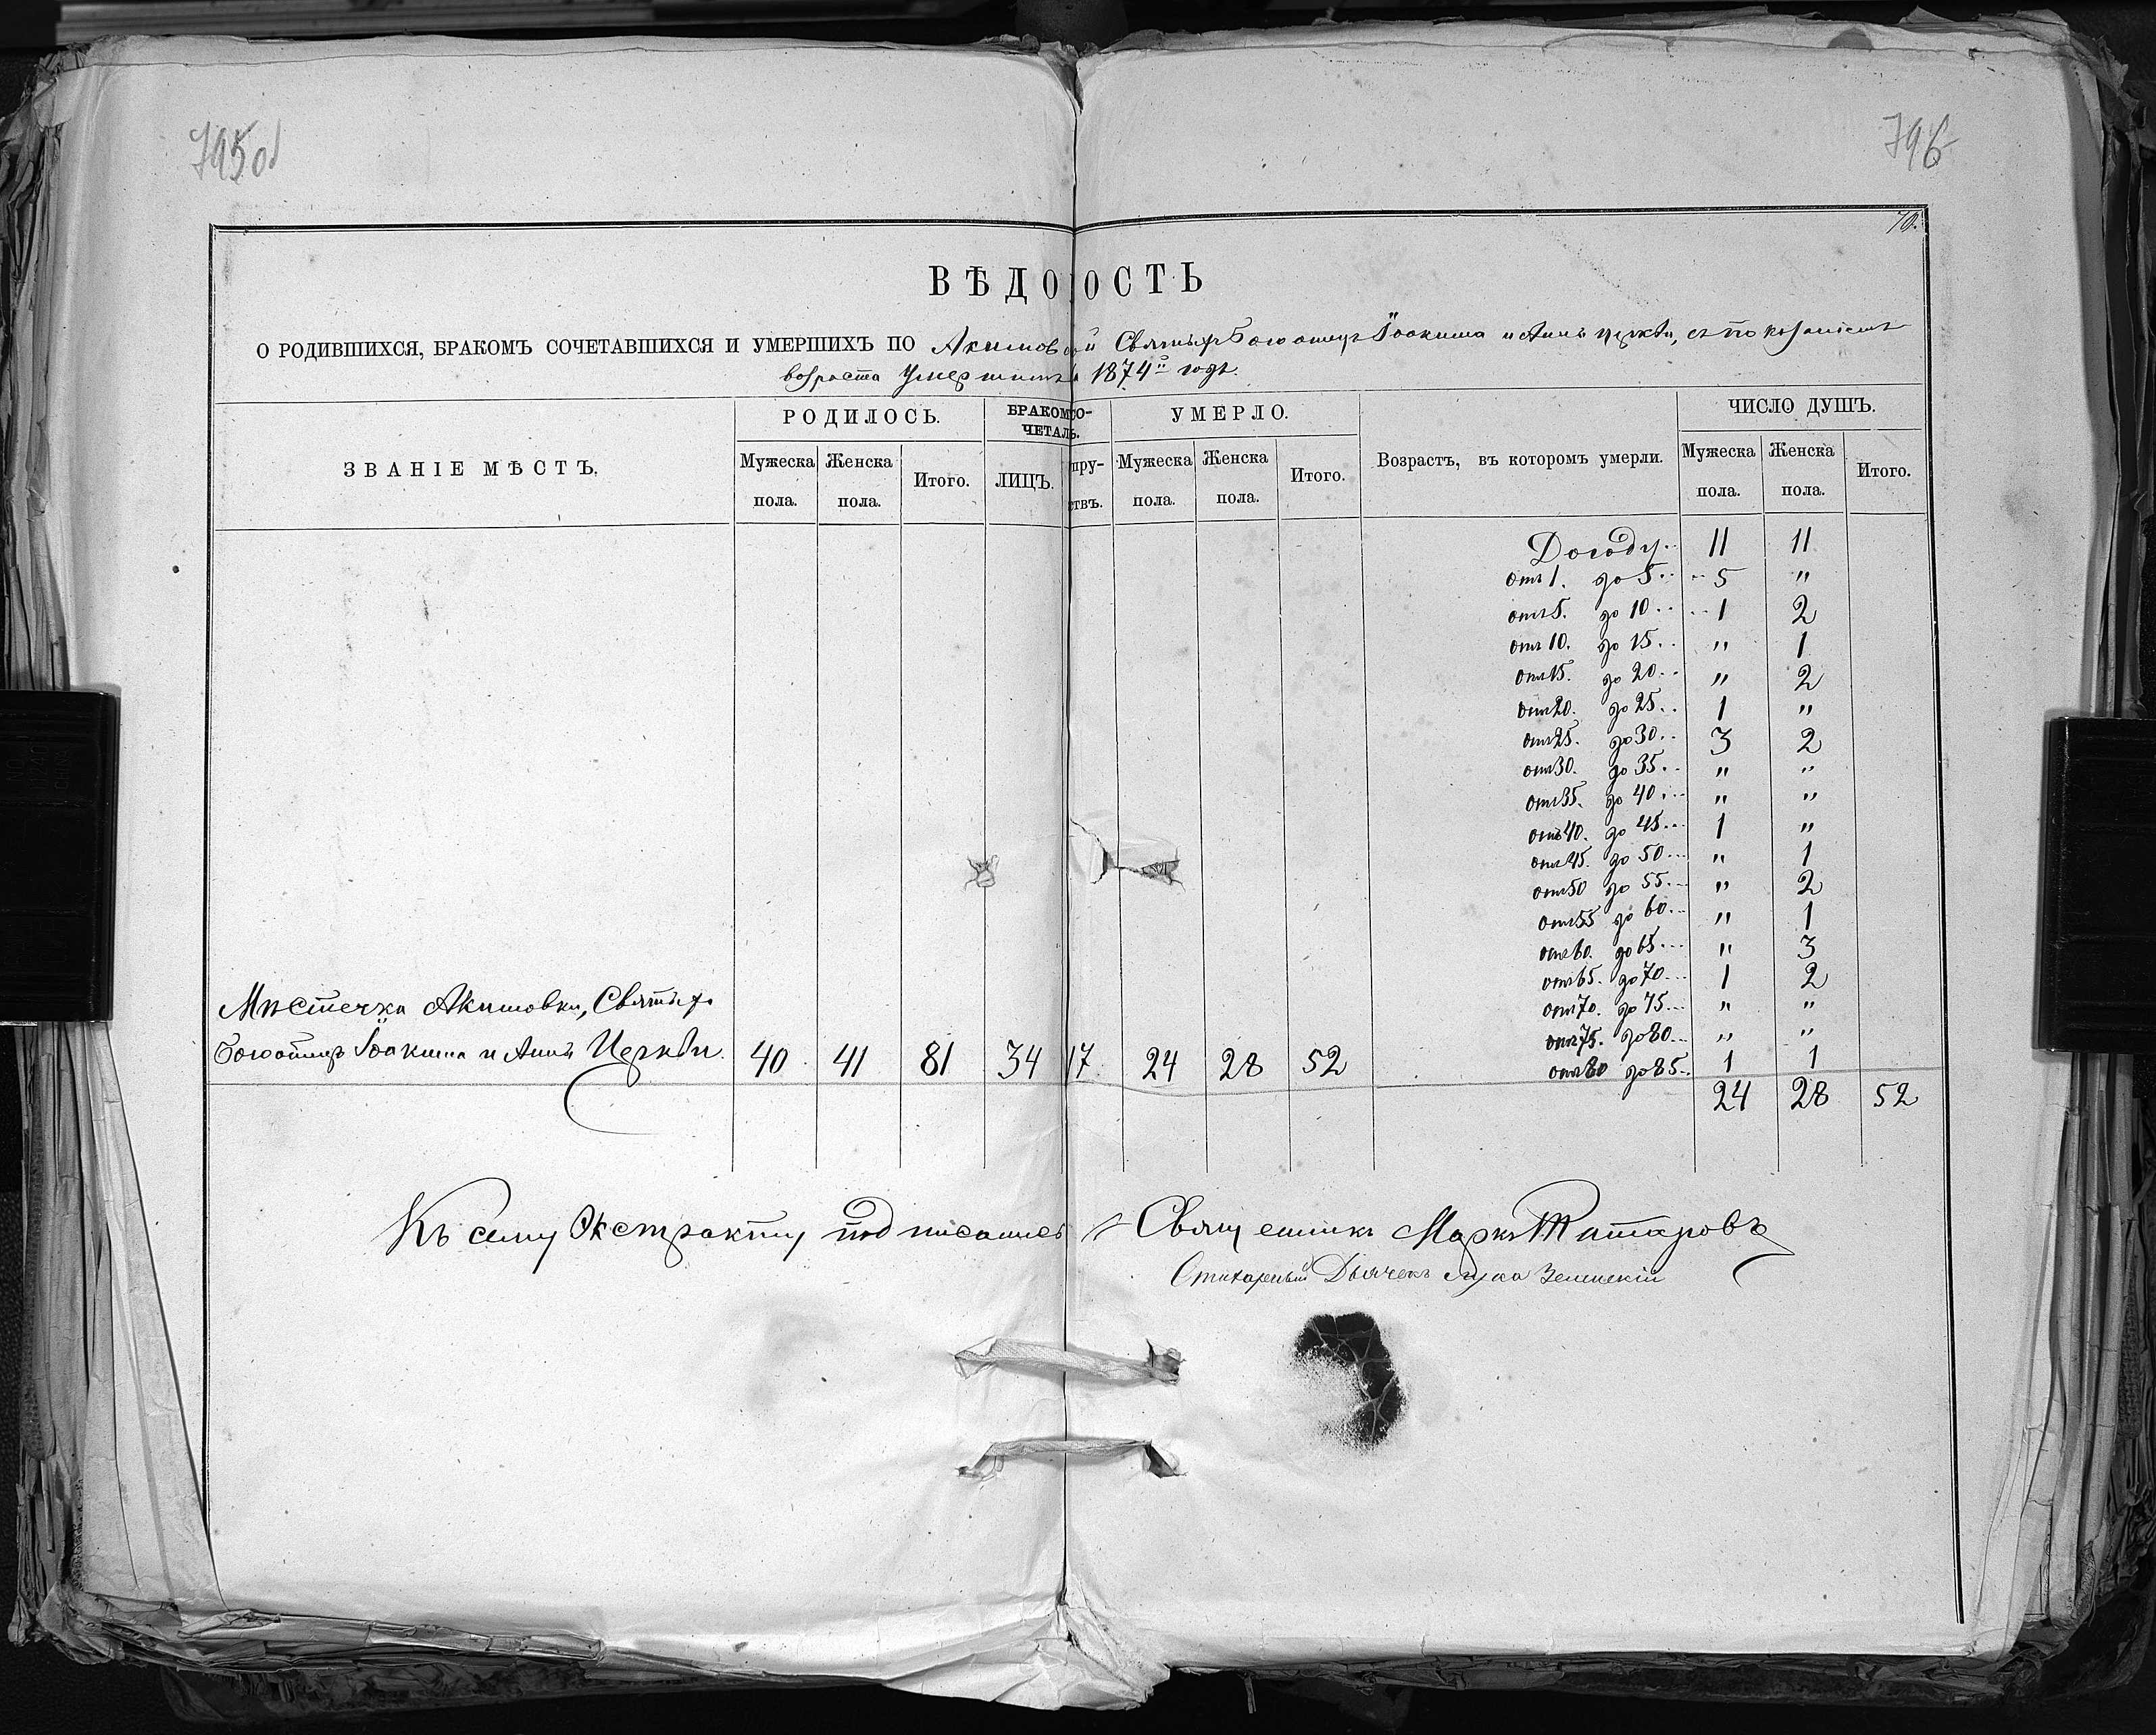 795об
796
70.
ВѢДОМОСТЬ
О РОДИВШИХСЯ, БРАКОМЪ СОЧЕТАВШИХСЯ И УМЕРШИХЪ ПО Акимовской Святыхъ Богоотецъ Іоакима и Анны церкви, съ показаніемъ
возраста умершихъ 1874го года.
ЗВАНІЕ МѢСТЪ. РОДИЛОСЬ. БРАКОМЪ СО-ЧЕТАЛЬ. УМЕРЛО. Возрастъ, въ которомъ умерли. ЧИСЛО ДУШЪ.
Мужеска пола. Женска пола. Итого. ЛИЦЪ. пру-ствъ. Мужеска пола. Женска пола. Итого. Мужеска пола. Женска пола. Итого.
До году.. 11 11
отъ 1. до 5.. 5 "
отъ 5. до 10.. 1 2
отъ 10. до 15.. " 1
отъ 15. до 20.. " 2
отъ 20. до 25.. 1 "
отъ 25. до 30.. 3 2
отъ 30. до 35.. " "
отъ 35. до 40... " "
отъ 40. до 45... 1 "
отъ 45. до 50... " 1
отъ 50 до 55... " 2
отъ 55 до 60... " 1
отъ 60. до 65... " 3
отъ 65. до 70... 1 2
отъ 70. до 75... " "
отъ 75. до 80... " "
отъ 80 до 85.. 1 1
Мѣстечка Акимовки, Святыхъ
Богоотецъ Іоакима и Анны Церкви. 40 41 81 34 17 24 28 52
24 28 52
Къ сему Экстракту подписались Священникъ Маркъ Татаровъ
Стихарный Дьячекъ Лука Зелинскій